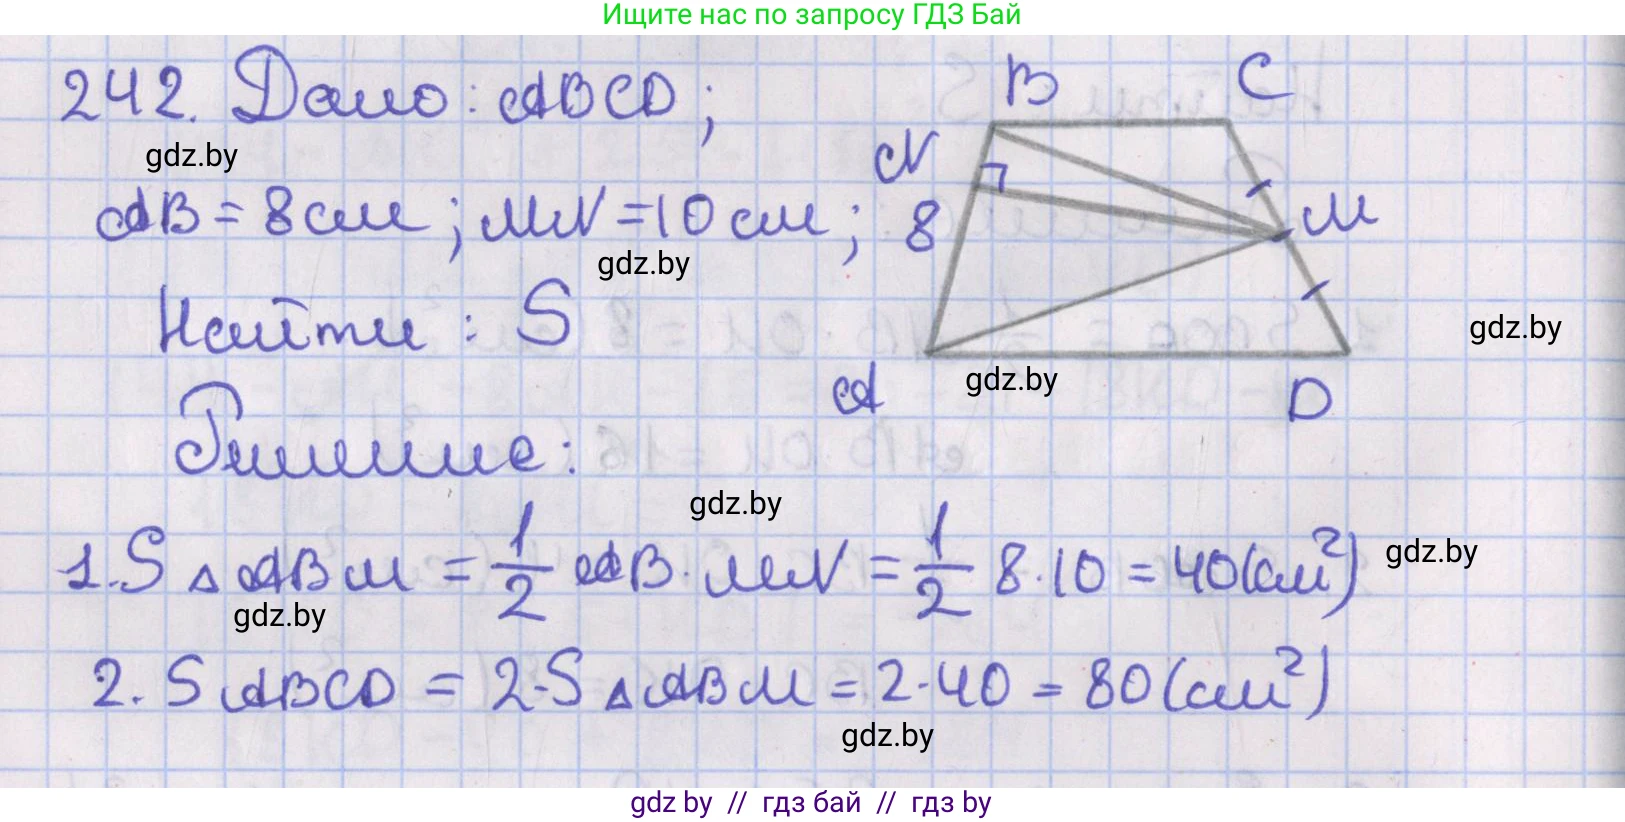 Ищите нас по запросу ГДЗ Бай
242. Дано: ABCD;
gdz.by
AB = 8 см; MN = 10 см;
gdz.by
Найти: S
B C
N
8
M
gdz.by
gdz.by
A D
Решение:
gdz.by
1. S △ ABM = 1/2 AB · MN = 1/2 8 · 10 = 40 (см²)
gdz.by
gdz.by
2. S ABCD = 2 · S △ ABM = 2 · 40 = 80 (см²)
gdz.by
gdz by // гдз бай // гдз by